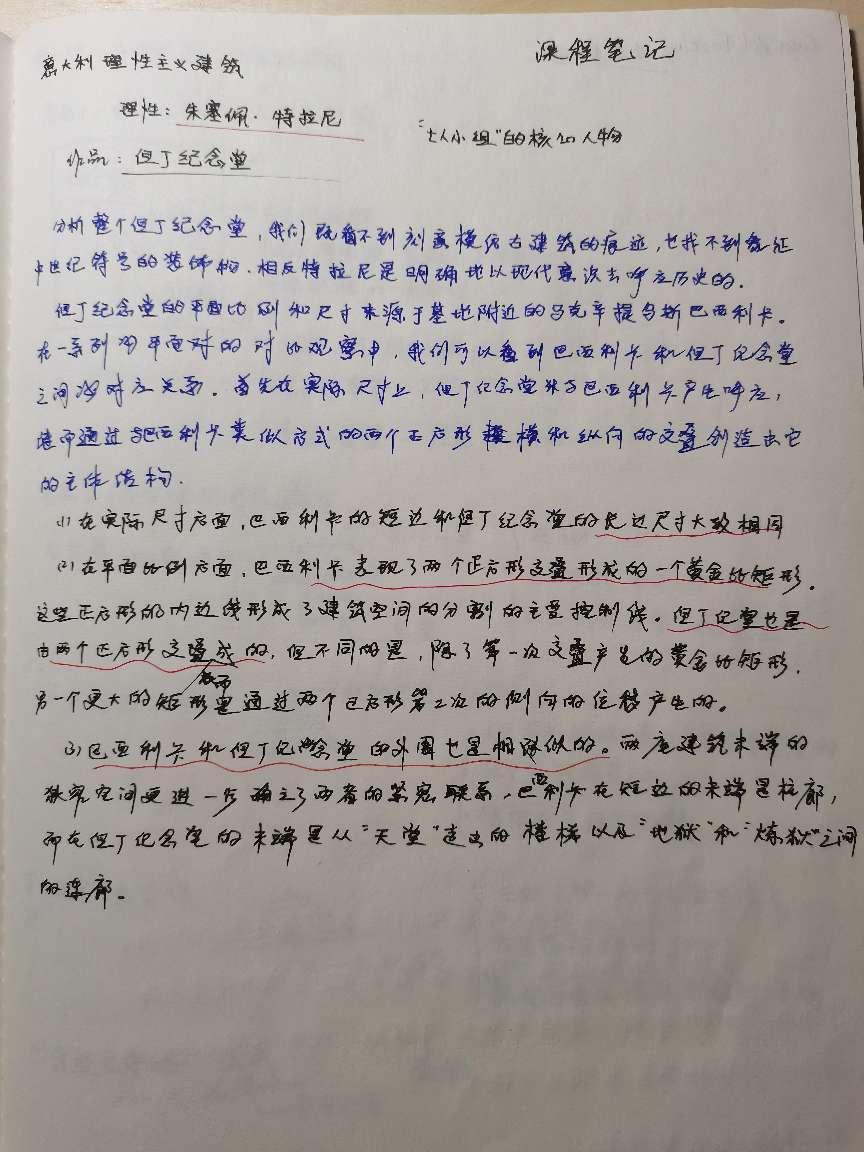 课程笔记
意大利理性主义建筑
理性：朱塞佩·特拉尼
"七人小组"的核心人物
作品：但丁纪念堂
分析整个但丁纪念堂，我们既看不到刻意模仿古建筑的痕迹，也找不到象征
中世纪符号的装饰物．相反特拉尼是明确地以现代意识去呼应历史的．
但丁纪念堂的平面比例和尺寸来源于基地附近的马克辛提乌斯巴西利卡．
在一系列的平面对的对比观察中，我们可以看到巴西利卡和但丁纪念堂
之间的对应关系．首先在实际尺寸上，但丁纪念堂与巴西利卡产生呼应，
进而通过与巴西利卡类似方式的两个正方形横和纵向的交叠创造出它
的主体结构．
(1) 在实际尺寸方面，巴西利卡的短边和但丁纪念堂的长边尺寸大致相同
(2) 在平面比例方面，巴西利卡表现了两个正方形交叠形成的一个黄金比矩形．
这些正方形的内边线形成了建筑空间的分割的主要控制线。但丁纪堂也是
由两个正方形交叠成的，但不同的是，除了第一次交叠产生的黄金比矩形，
另一个更大的矩形是通过两个正方形第2次的侧向的位移产生的。
(3) 巴西利卡和但丁纪念堂的外围也是相似的。两座建筑末端的
狭窄空间更进一步确立了两者的紧密联系，巴西利卡在短边的末端是柱廊，
而在但丁纪念堂的末端是从"天堂"走出的楼梯以及"地狱"和"炼狱"之间
的连廊。